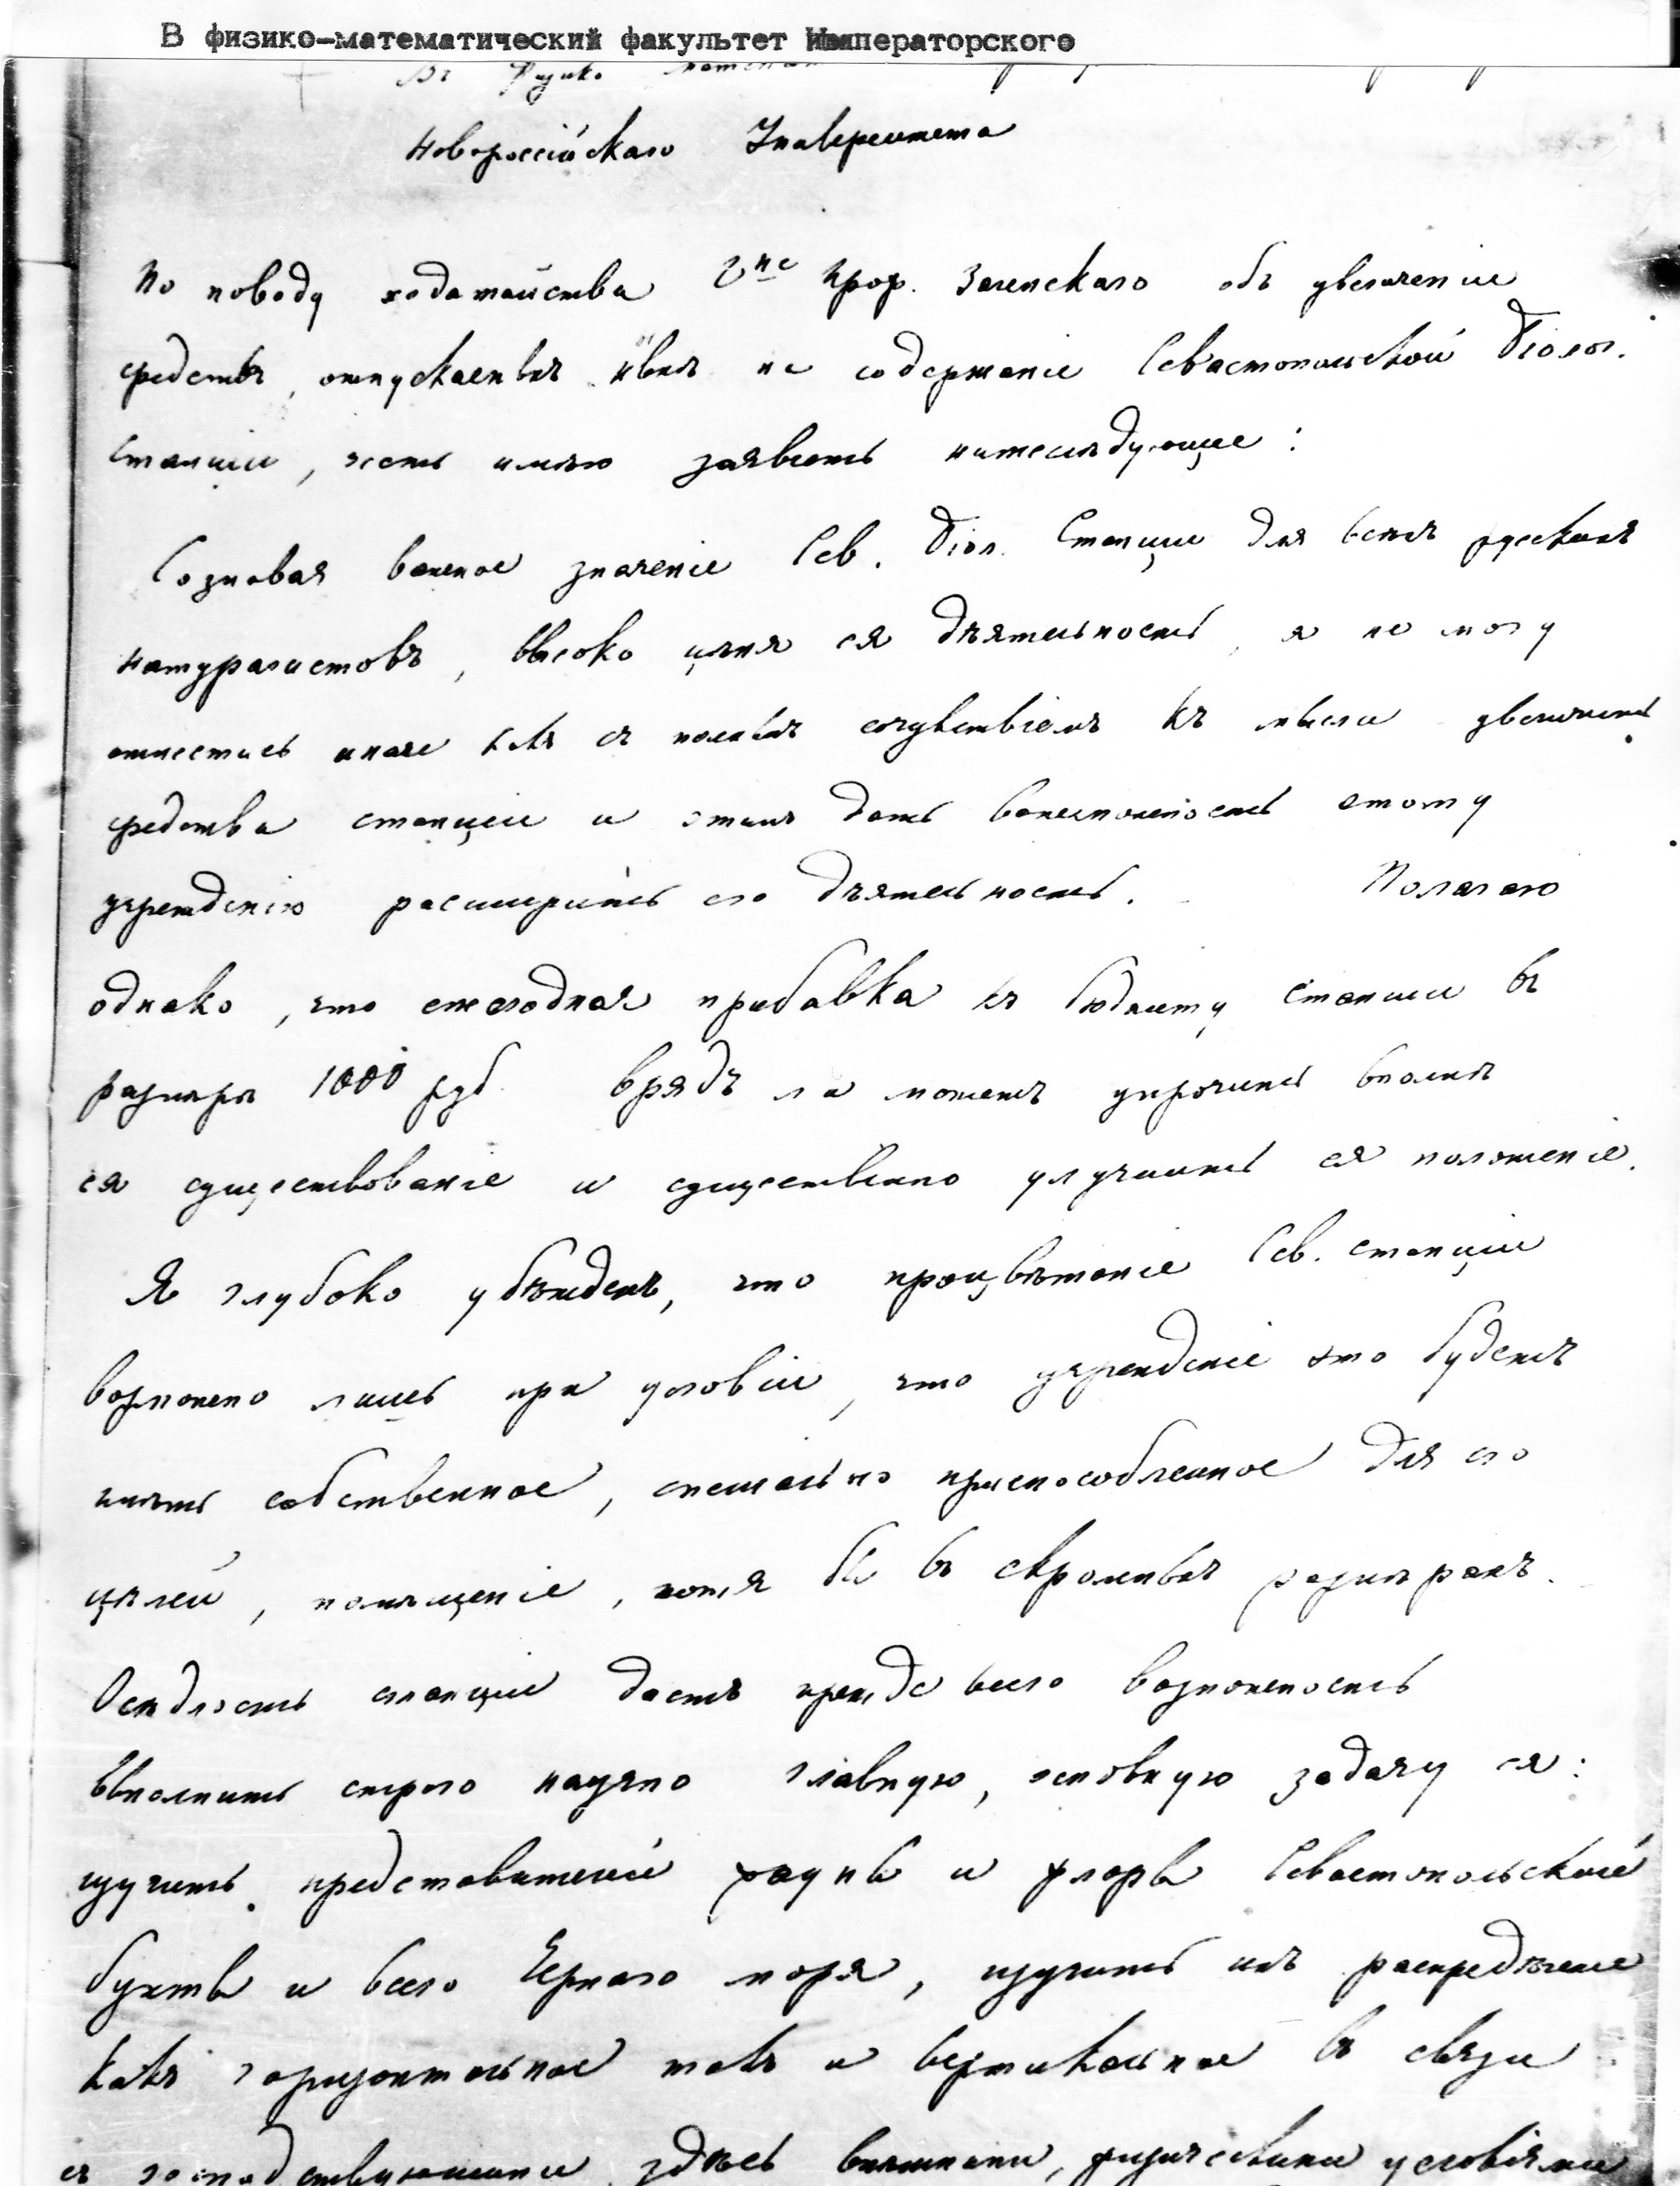 В физико-математический факультет Императорского
Въ Физико
Новороссійскаго Университета
По поводу ходатайства Г-на Проф. Заленскаго объ увеличеніи
средствъ, отпускаемыхъ нынѣ на содержаніе Севастопольской Біолог.
Станціи, честь имѣю заявить нижеслѣдующее:
Сознавая важное значеніе Сев. Біол. Станціи для всѣхъ русскихъ
натуралистовъ, высоко цѣня ея дѣятельность, я не могу
отнестись иначе какъ съ полнымъ сочувствіемъ къ мысли увеличить
средства станціи и этимъ дать возможность этому
учрежденію расширить его дѣятельность. Полагаю
однако, что ежегодная прибавка къ бюджету станціи въ
размѣрѣ 1000 руб. врядъ ли можетъ упрочить вполнѣ
ея существованіе и существенно улучшить ея положеніе.
Я глубоко убѣжденъ, что процвѣтаніе Сев. станціи
возможно лишь при условіи, что учрежденіе это будетъ
имѣть собственное, спеціально приспособленное для его
цѣлей, помѣщеніе, хотя бы въ скромныхъ размѣрахъ.
Осѣдлость станціи дастъ прежде всего возможность
выполнить строго научно главную, основную задачу ея:
изучить представителей фауны и флоры Севастопольской
бухты и всего Чернаго моря, изучить ихъ распредѣленіе
какъ горизонтальное такъ и вертикальное въ связи
съ господствующими здѣсь внѣшними, физическими условіями